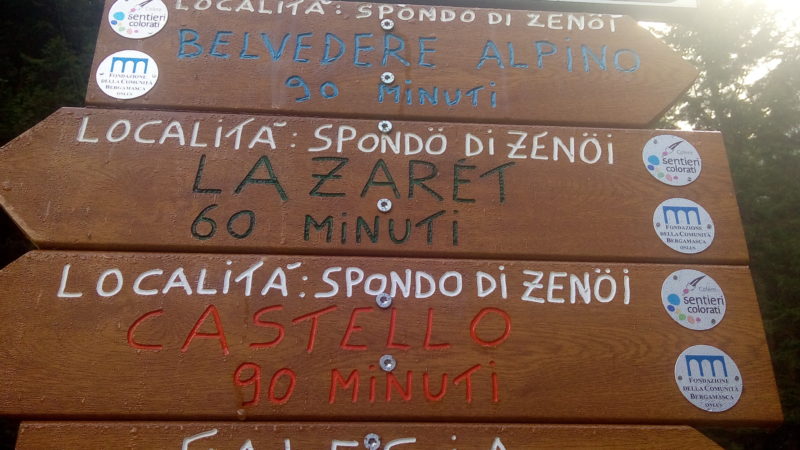 LOCALITÀ: SPONDO DI ZENÖI
BELVEDERE ALPINO
90 MINUTI
sentieri
colorati
FONDAZIONE
DELLA COMUNITÀ
BERGAMASCA
ONLUS
LOCALITÀ: SPONDÖ DI ZENÖI
LAZARET
60 MINUTI
Colere
sentieri
colorati
FONDAZIONE
DELLA COMUNITÀ
BERGAMASCA
ONLUS
LOCALITÀ: SPONDO DI ZENÖI
CASTELLO
90 MINUTI
Colere
sentieri
colorati
FONDAZIONE
DELLA COMUNITÀ
BERGAMASCA
ONLUS